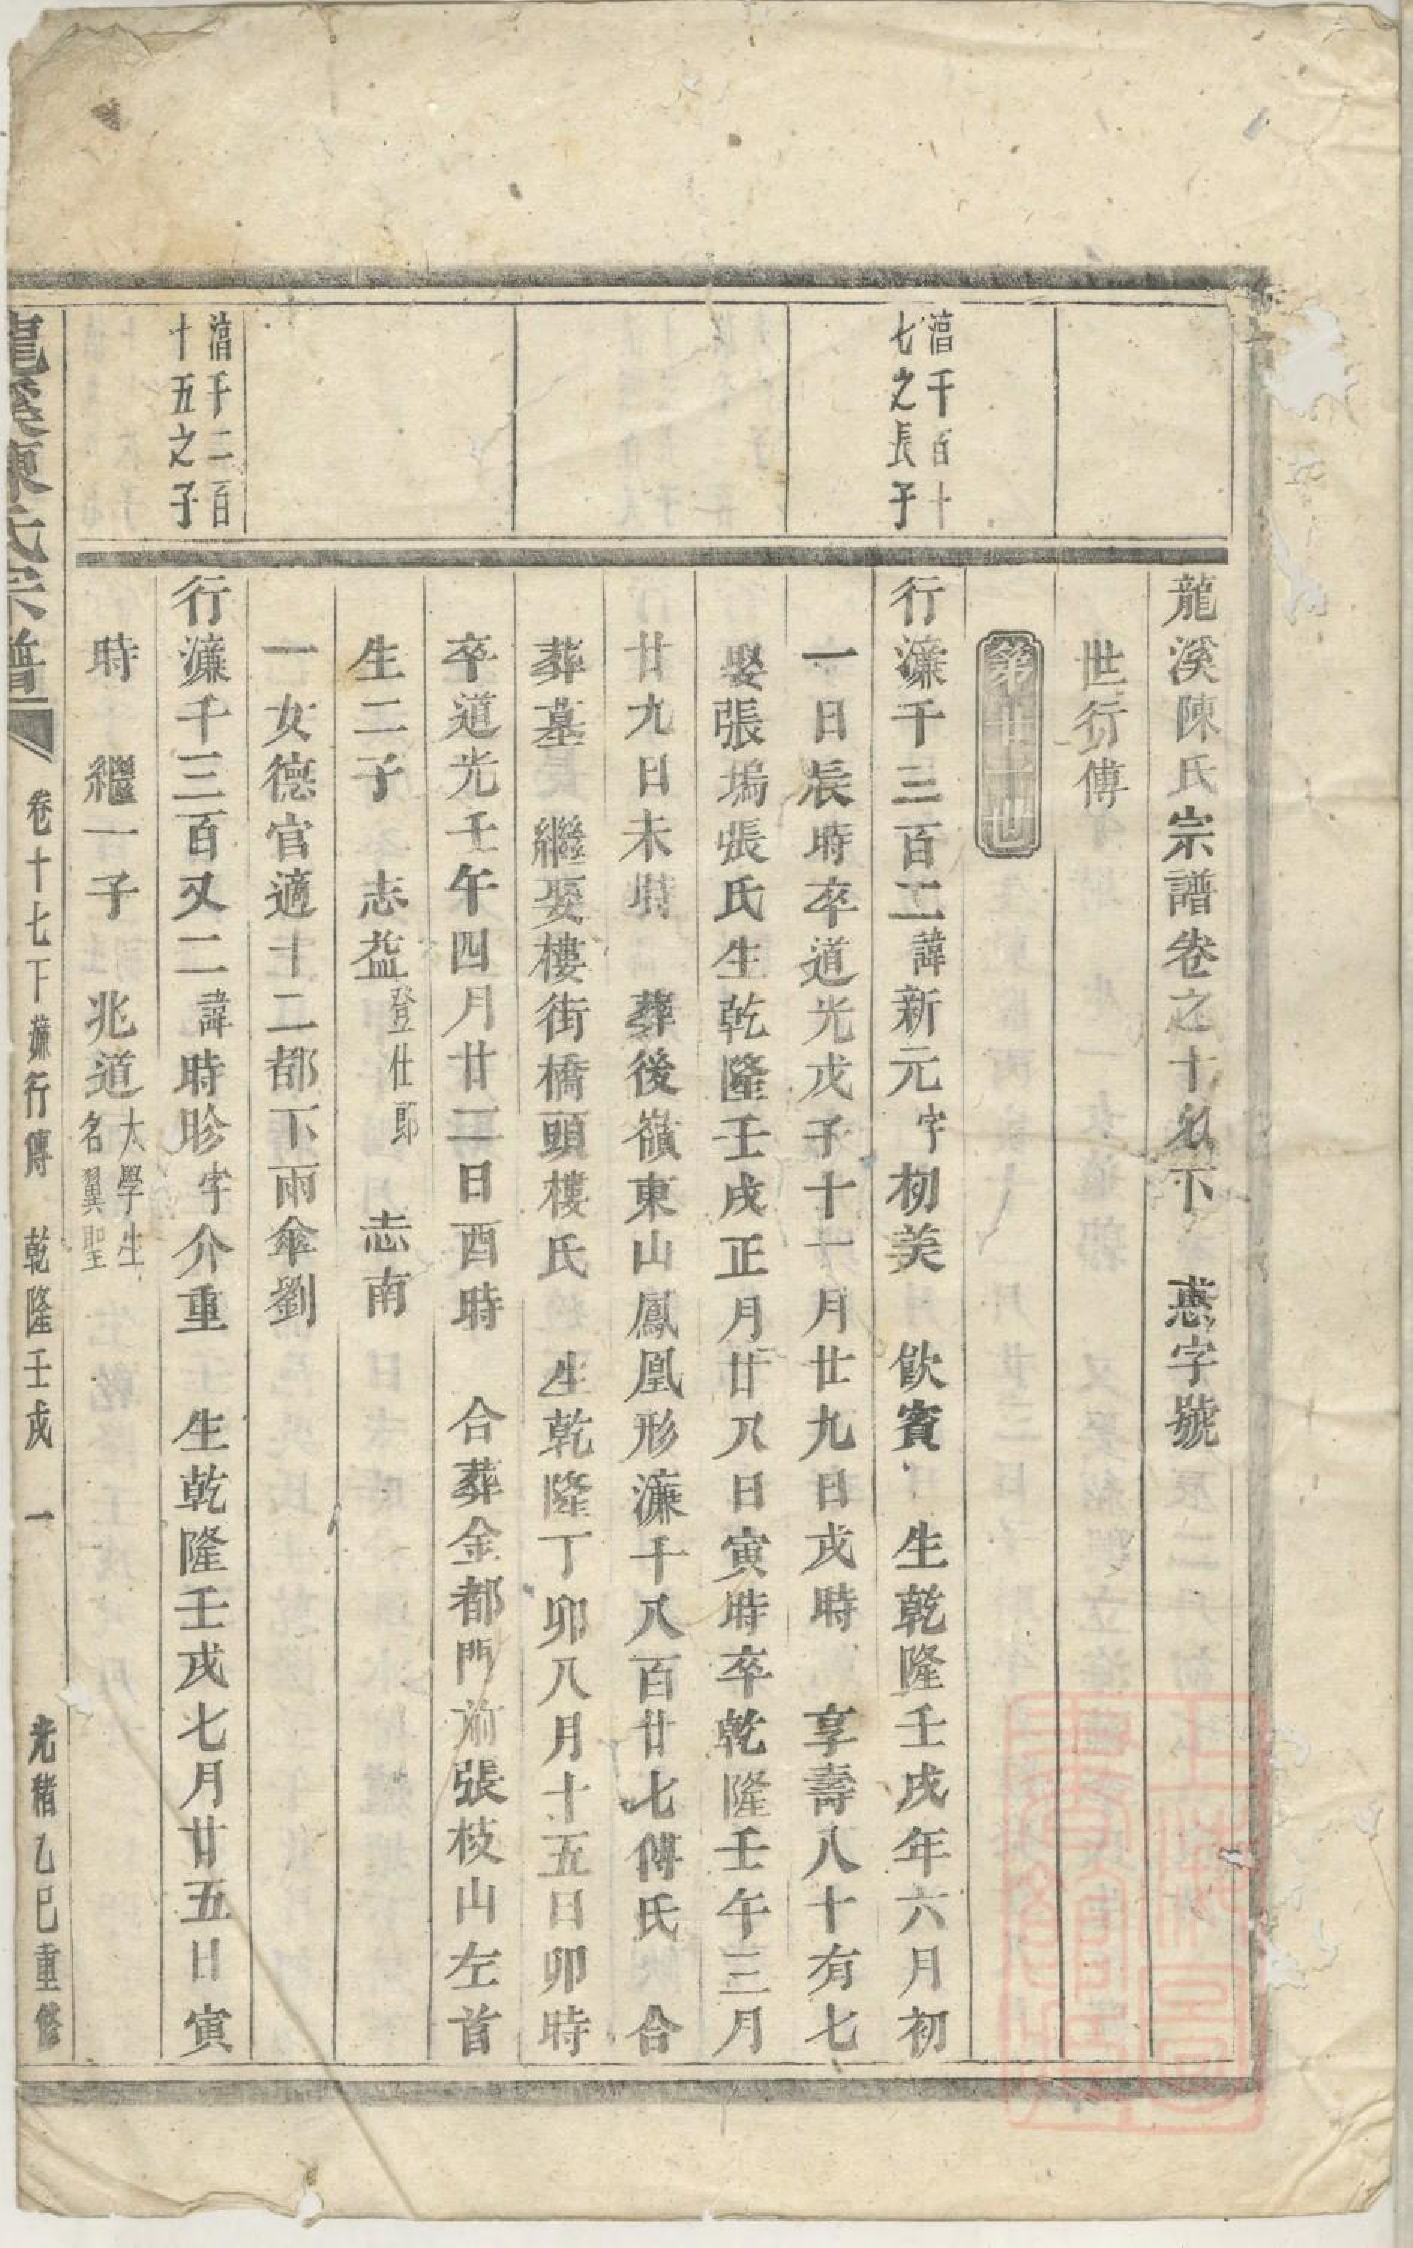 龍溪陳氏宗譜卷之十七下　惠字號
世行傳
第廿一世
湻千百十
七之長子
行濂千三百二諱新元字初美　飲賓　生乾隆壬戌年六月初
一日辰時卒道光戊子十一月廿九日戌時　享壽八十有七
娶張塢張氏生乾隆壬戌正月廿八日寅時卒乾隆壬午三月
廿九日未時　葬後嶺東山鳳凰形濂千八百廿七傅氏　合
葬墓　繼娶樓街橋頭樓氏　生乾隆丁卯八月十五日卯時
卒道光壬午四月廿二日酉時　合葬金都門前張枝山左首
生二子　志益登仕郎　志南
一女德官適十二都下雨傘劉
湻千二百
十五之子
行濂千三百又二諱時昣字介重　生乾隆壬戌七月廿五日寅
時　繼一子　兆道大學生名翼聖
龍溪陳氏宗譜　卷十七下濂行傳　乾隆壬戌　一　光緒乙巳重修